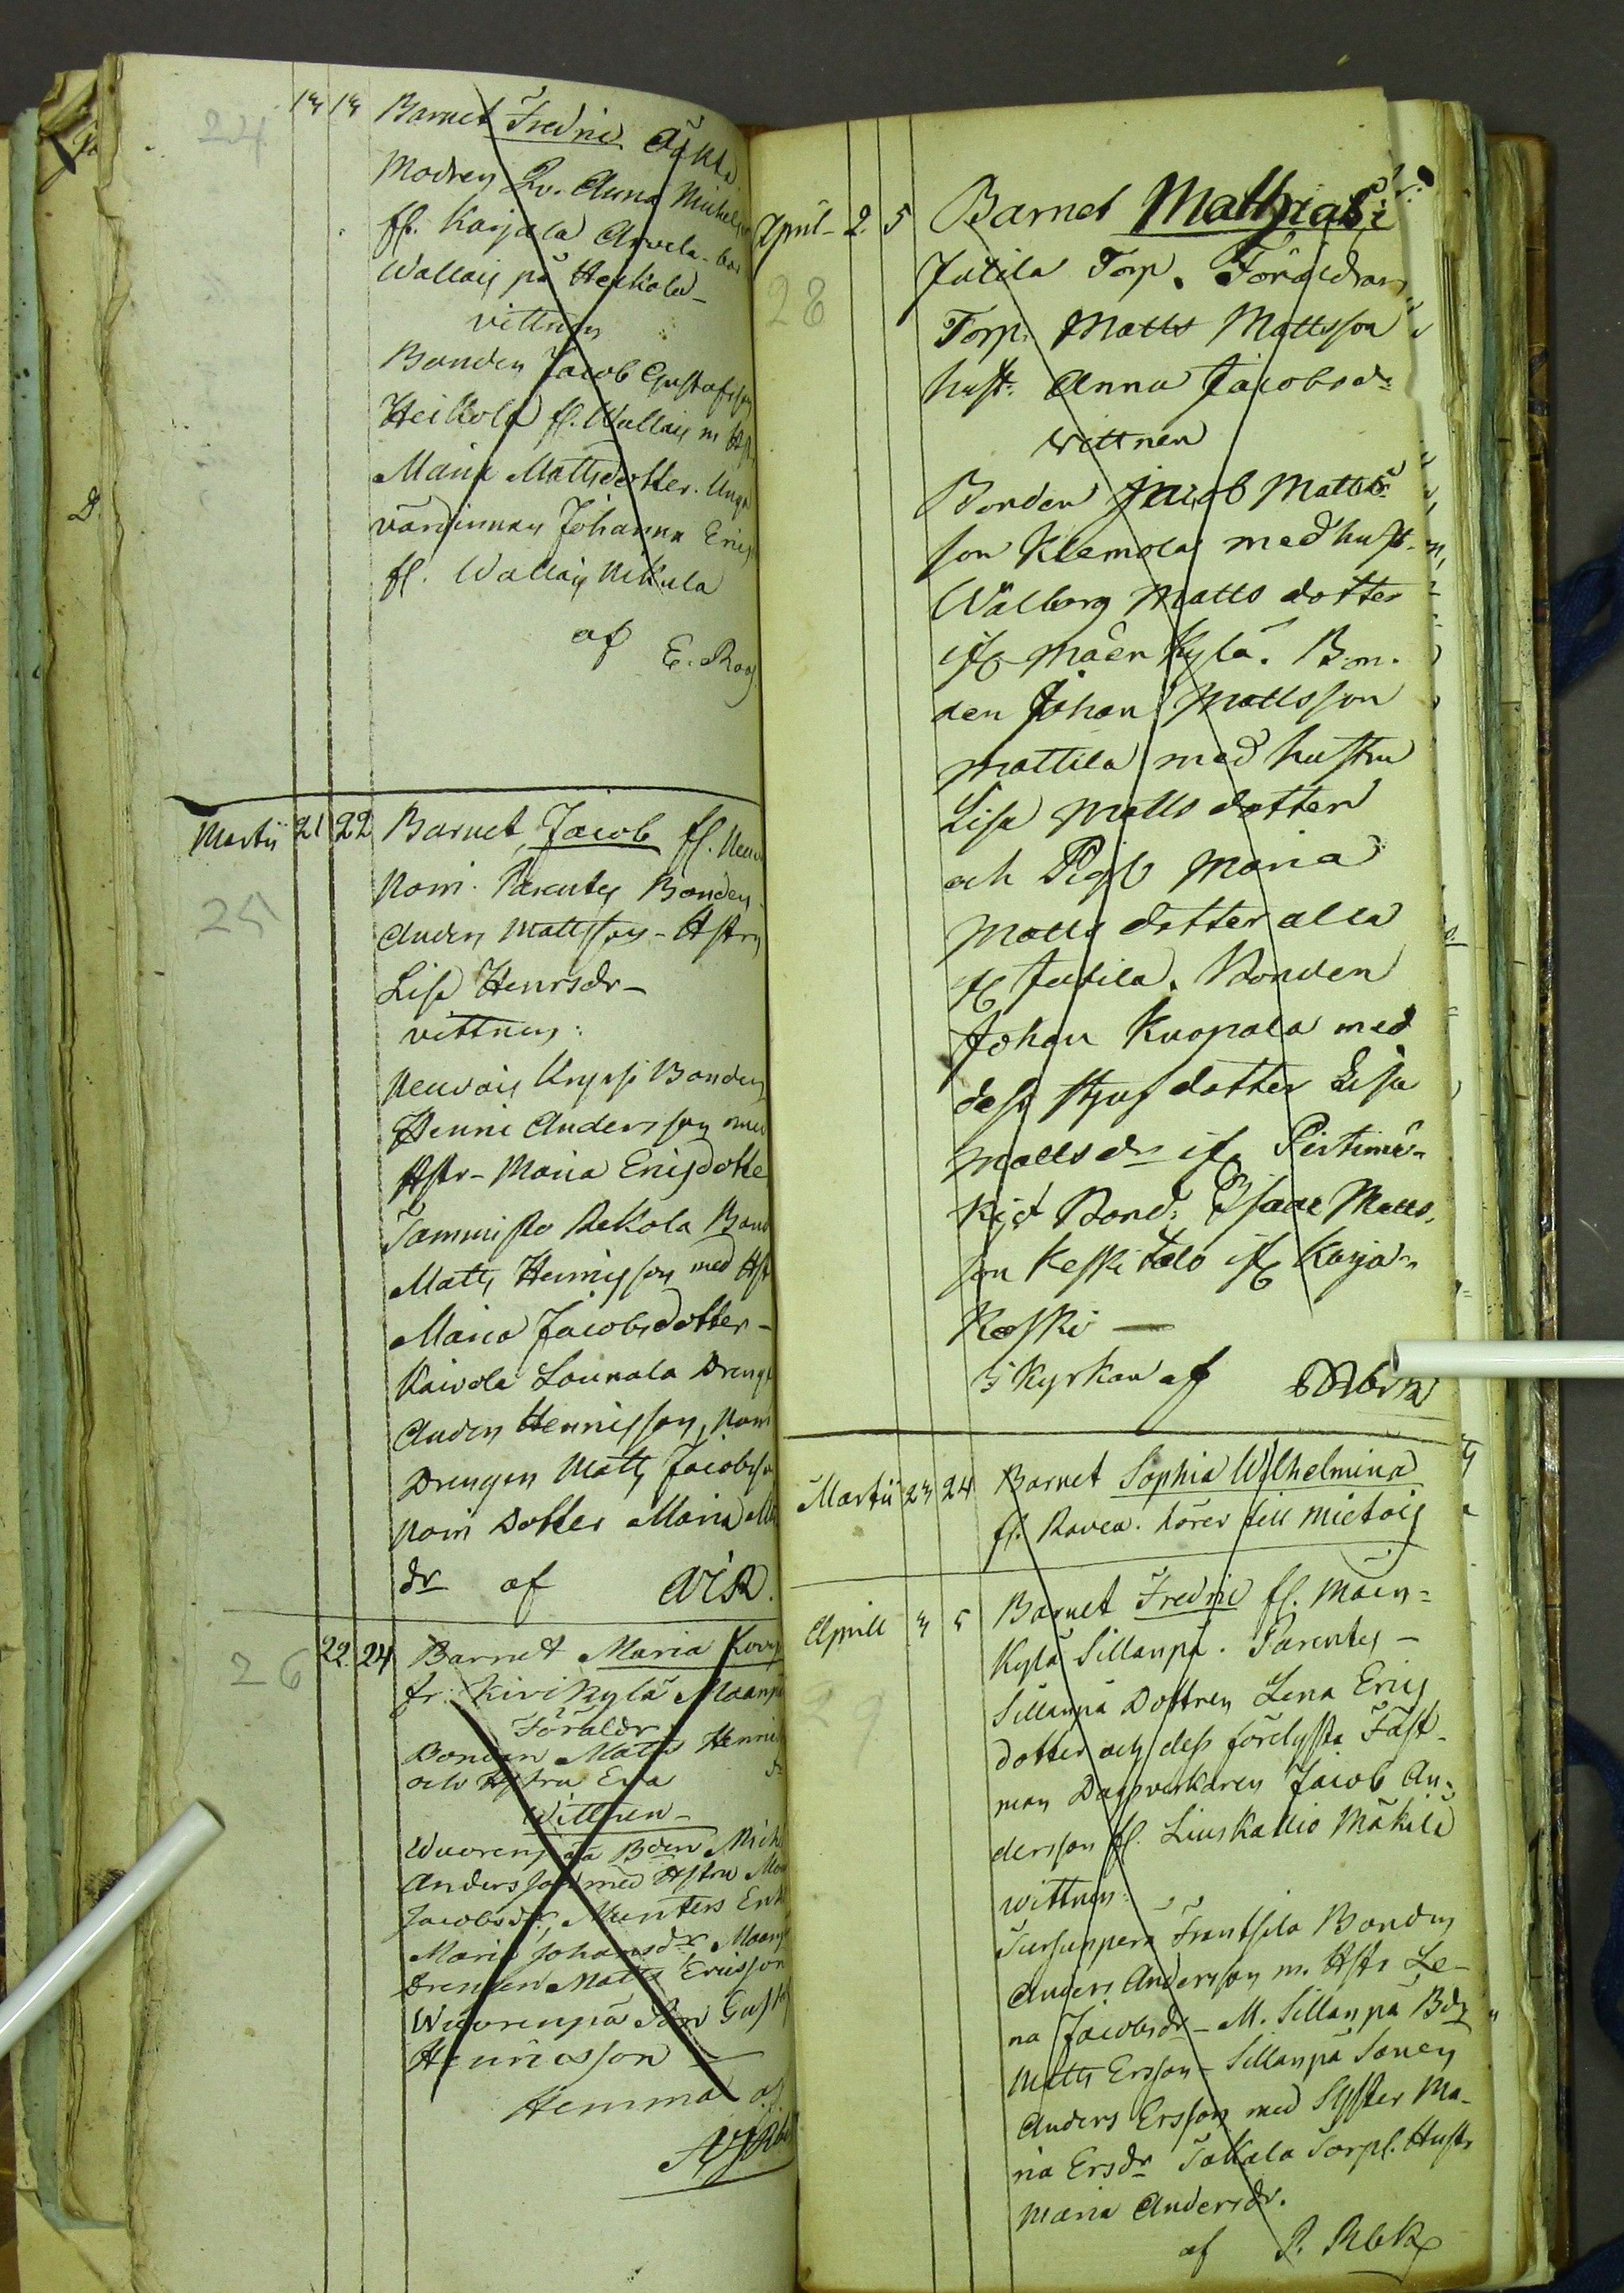 24 13 13 Barnet Fredric Oäkta
Modren Qv. Anna Michels
fr. Karjala Arvela - hos
Wallais på Heikola -
vittnen
Bonden Jacob Gustafsson
Heikola fr. Wallais m Hst
Maria Mattsdotter. Unga
värdinnan Johanna Erics
fr. Wallais Nikula
af E. Roos
Martii 21 22 Barnet Jacob fr.
25 Nomi. Parentes Bonden
Anders Mattsson - Hstru
Lisa Henrsdr -
vittnen:
Neuvois Knussi Bonden
Henric Andersson med
Hstr - Maria Ericsdotte
Tammisto Rekola Bond
Matts Henricsson med Hst
Maria Jacobsdotter -
Kaivola Lounala Dreng
Anders Henricsson, Nomi
Drengen Matts Jacobsso
Nomi Dotter Maria
dr af
26 22. 24 Barnet Maria
fr. Kivikylä Maanpä
Föräldr
Bonden Matts Henric
och Hstru Eva dr
Wittnen -
Wuorenpää Bden Mich
Andersson med Hstru
Jacobsdr, Munters Enk
Maria Johansdr Maanpä
Drengen Matts Ericsson
Wuorenpä Son Gust
Henricsson -
Hemma af
April 2. 5 Barnet Mathias i
28 Jutila Torp. Föräldrar
Torp. Matts Mattsson
hust. Anna Jacobsdr
Wittnen
Bonden Jacob Matts
son Klemola med hust.
Walborg Matts dotter
ifr Mäenkylä. Bon.
den Johan Mattsson
Mattila med hustru
Lisa Matts dotter
och Pig. Maria
Matts dotter alla
fr Jutila. Bonden
Johan Kuopala med
dess styf dotter Lisa
Mattsdr ifr Pirtimä
Kyl Bond. Isaac Matts
son Keskitalo ifr Karja
Koski —
I Kyrkan af
Martii 23 24 Barnet Sophia Wilhelmina
fr. Ravea. hörer till Mietois
Aprill 3 5 Barnet Fredric fr. Mäen=
29 Kylä Sillanpä. Parentes -
Sillanpä Dottren Lena Erics
dotter och dess förelysta Fäst-
man Dagsverkaren Jacob An-
dersson fr. Liuskallio Mäkilä
wittnen:
Tursunperä Frantsila Bonden
Anders Andersson m. Hstr Le-
na Jacobsdr - M. Sillanpä Bdn
Matts Ersson - Sillanpä Sonen
Anders Ersson med Syster Ma-
ria Ersdr Takala Torp. Hustr
Maria Andersdr.
af